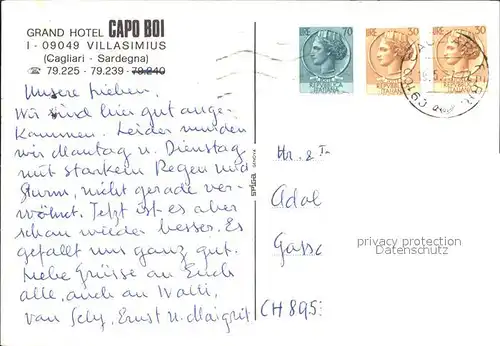 GRAND HOTEL CAPO BOI
I - 09049 VILLASIMIUS
(Cagliari - Sardegna)
☎ 79.225 - 79.239 - 79.240
LIRE 70
LIRE 30
LIRE 30
Unsere Lieben.
Wir sind hier gut ange-
kommen. Leider wurden
wir Montag u. Dienstag
mit starkem Regen und
Sturm, nicht gerade ver-
wöhnt. Jetzt ist es aber
schon wieder besser. Es
gefällt uns ganz gut.
Liebe Grüsse an Euch
alle, auch an Walti,
von Ernst u. Maigrit
GENOVA
Hr. &
Adol
Gasse
CH 895
privacy protection
Datenschutz